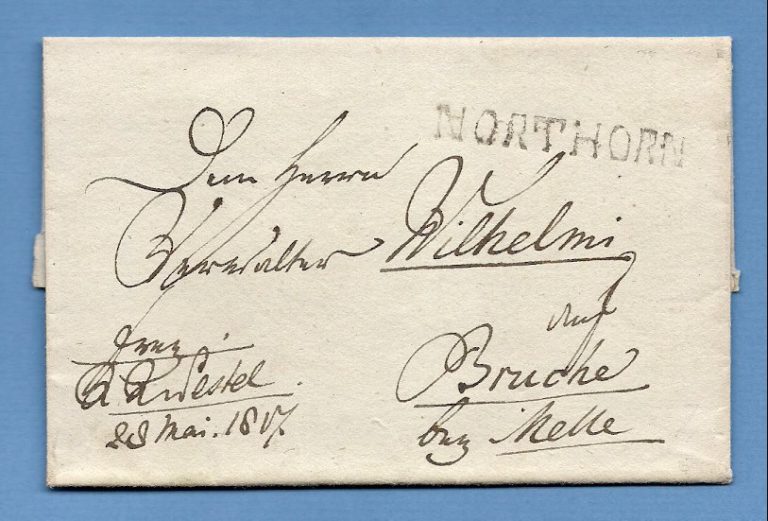 NORTHORN
Dem Herrn
Verwalter Wilhelmi
auf
Bruche
bey Melle
frey.
28 Mai. 1817.